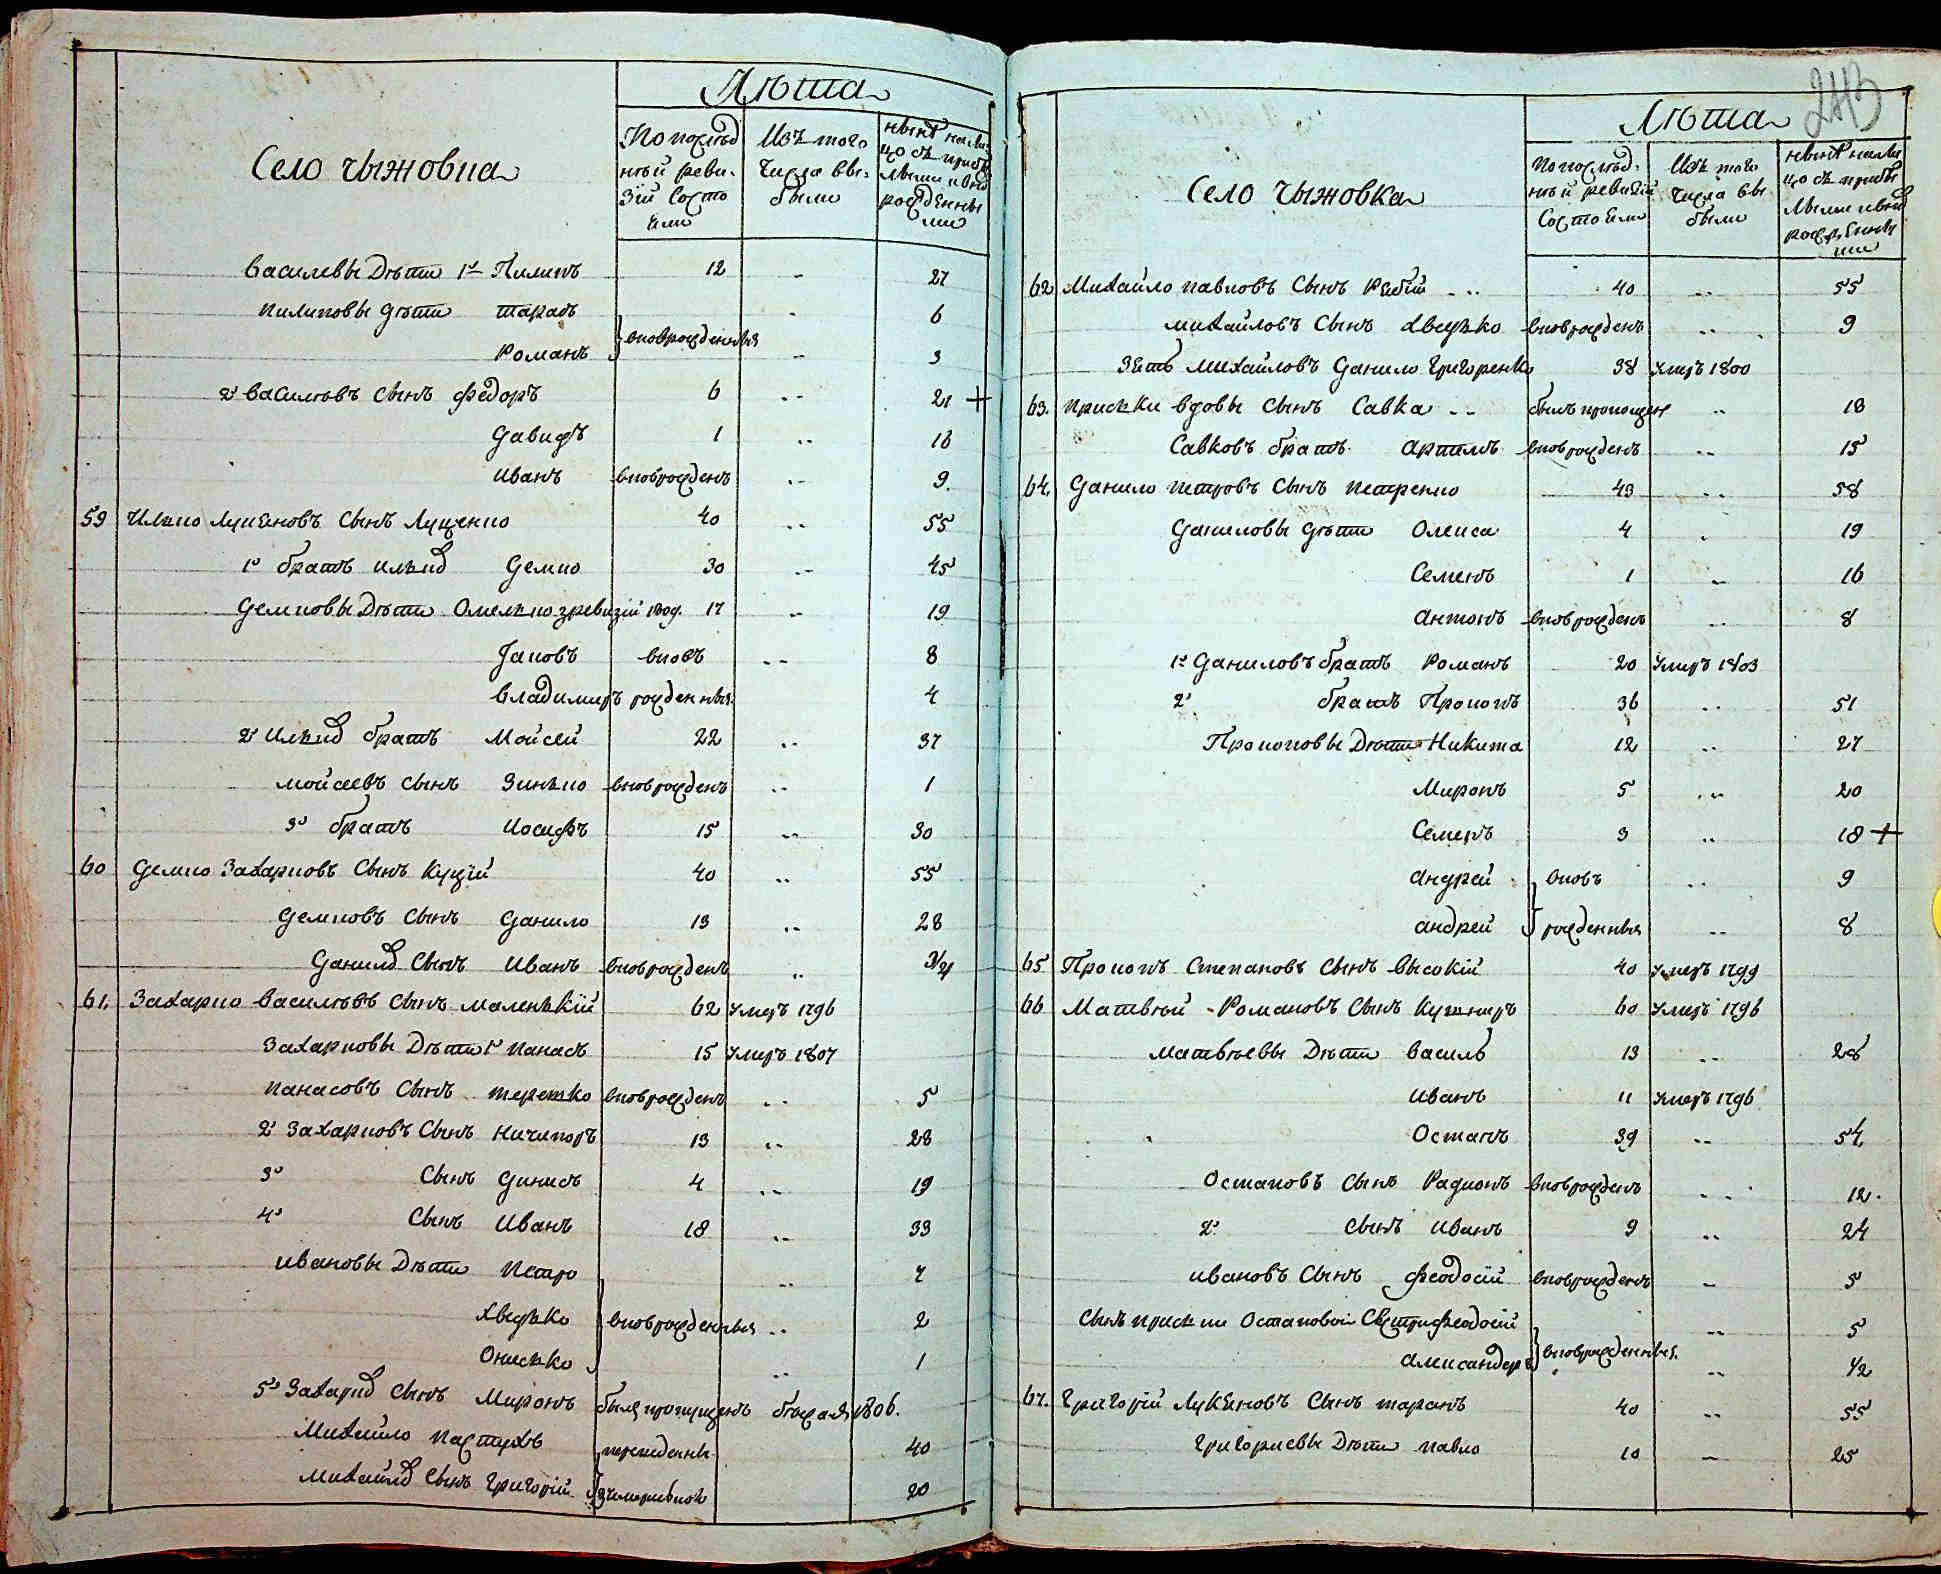 Лѣта
Село Чыжовка
По послѣд
ней реви-
зіи состо
яли
Изъ того
числа вы-
были
нынѣ нали-
цо съ прибы
лыми и вно
рожденны
ми
Василевы Дѣти 1й Пилипъ 12 - 27
Пилиповы дѣти Тарасъ - 6
Романъ } вноврожденныя - 3
2й Василевъ сынъ Федоръ 6 .. 21 +
Давидъ 1 .. 16
Иванъ вноврожденъ .. 9
59 Илько Лукяновъ сынъ Луценко 40 .. 55
1й братъ Илька Демко 30 .. 45
Демковы Дѣти Омелько зревизіи 17 - 19
Яковъ вновъ .. 8
Владимиръ рожденныя 4
2й Илька братъ Мойсей 22 .. 37
Мойсеевъ сынъ Зинько вноврожденъ .. 1
3й братъ Иосифъ 15 .. 30
60 Демко Захарковъ сынъ Куцій 40 .. 55
Демковъ сынъ Данило 13 .. 28
Данила сынъ Иванъ вноврожденъ .. 3/4
61. Захарко Василевъ сынъ Маленькій 62 умеръ 1796
Захарковы Дѣти 1й Панасъ 15 умеръ 1807
Панасовъ сынъ Терешко вноврожденъ .. 5
2й Захарковъ сынъ Ничипоръ 13 .. 28
3й сынъ Динисъ 4 .. 19
4й сынъ Иванъ 18 .. 33
Ивановы Дѣти Петро .. 7
Хведько } вноврожденныя .. 2
Онисько .. 1
5й Захарка сынъ Миронъ былъ пропущенъ 1806.
Михайло Пастухъ 40
Михайла сынъ Григорій 20
243
Лѣта
Село Чыжовка
По послѣд-
ней ревизіи
состояли
Изъ того
числа вы
были
нынѣ нали
цо съ прибы
лыми и вно
рожденны
ми
62 Михайло Павловъ сынъ Рябій .. 40 .. 55
Михайловъ сынъ Хведько вноврожденъ .. 9
Зять Михайловъ Данило Григоренко 38 умеръ 1800
63. Приськи вдовы сынъ Савка .. былъ пропущенъ .. 18
Савковъ братъ Артемъ вноврожденъ .. 15
64. Данило Петровъ сынъ Петренко 43 .. 58
Даниловы дѣти Олекса 4 . 19
Семенъ 1 .. 16
Антонъ вноврожденъ .. 8
1й Даниловъ братъ Романъ 20 умеръ 1803
2й братъ Прокопъ 36 .. 51
Прокоповы Дѣти Никита 12 .. 27
Миронъ 5 .. 20
Семенъ 3 .. 18 +
Андрей } вновъ .. 9
Андрей рожденныя .. 8
65 Прокопъ Степановъ сынъ Высокій 40 умеръ 1799
66 Матвѣй Романовъ сынъ Кушниръ 60 умеръ 1796
Матвѣевы Дѣти Василь 13 .. 28
Иванъ 11 умеръ 1796
Остапъ 39 .. 54
Остаповъ сынъ Радионъ вноврожденъ .. 12.
2й сынъ Иванъ 9 .. 24
Ивановъ сынъ Феодосій вноврожденъ - 5
Сынъ Приськи Остаповой сестри Феодосій .. 5
Александеръ } вноврожденныя. .. 1/2
67. Григорій Лукяновъ сынъ Таранъ 40 .. 55
Григориевы Дѣти Павло 10 - 25